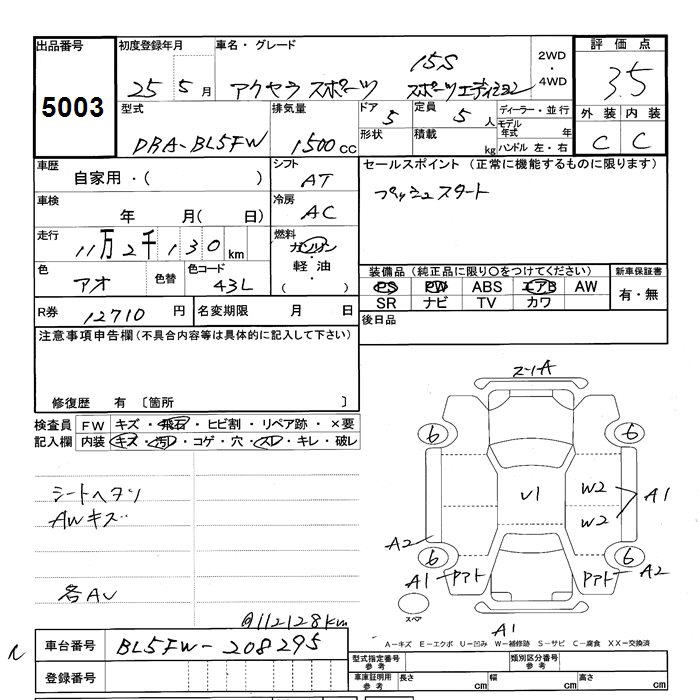 出品番号 初度登録年月 車名・グレード 15S 2WD 評価点
5003 25 5月 アクセラ スポーツ スポーツエディション ・4WD 3.5
型式 排気量 ドア 5 定員 5人 ディーラー・並行 外装 内装
DBA-BL5FW 1500cc 形状 積載 kg モデル年式 年 C C
ハンドル 左・右
車歴 自家用・( ) シフト AT セールスポイント(正常に機能するものに限ります)
車検 年 月( 日) 冷房 AC プッシュスタート
走行 11万2千130km 燃料 ガソリン
軽油・
( )
色 アオ 色替 色コード 43L 装備品(純正品に限り○をつけてください) 新車保証書
PS PW ABS エアB AW 有・無
SR ナビ TV カワ
R券 12710円 名変期限 月 日 後日品
注意事項申告欄(不具合内容等は具体的に記入して下さい)
修復歴 有 〔箇所 〕
検査員 FW キズ・飛石・ヒビ割・リペア跡・×要
記入欄 内装 キズ・汚レ・コゲ・穴・スレ・キレ・破レ
シートヘタリ
AWキズ
各AU
2-1A
6 6
U1 W2 A1
W2
A2
6 6
A1 アト アト A2
スペア
A1
@112128km
A-キズ E-エクボ U-凹み W-補修跡 S-サビ C-腐食 XX-交換済
車台番号 BL5FW-208295 型式指定番号 参考 類別区分番号 参考
登録番号 車庫証明用 参考 長さ cm 幅 cm 高さ cm